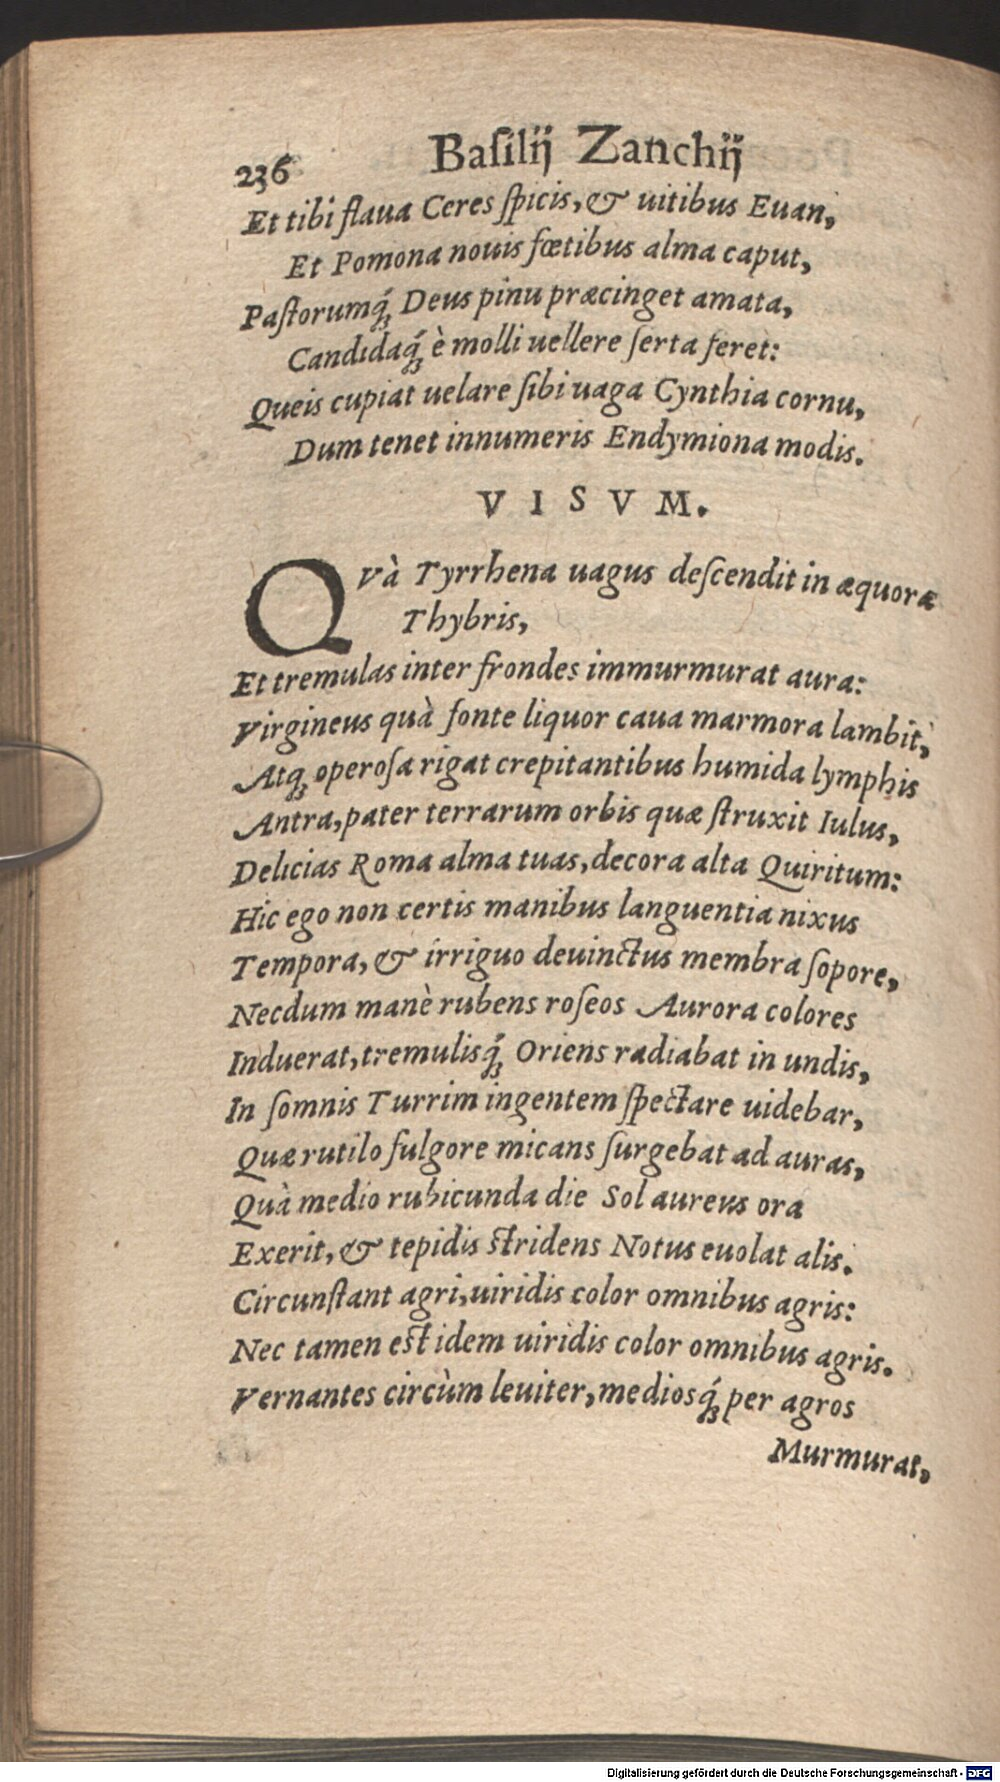 236 Basilij Zanchij
Et tibi flaua Ceres ſpicis, & uitibus Euan,
Et Pomona nouis fœtibus alma caput,
Paſtorumq́ꝫ Deus pinu præcinget amata,
Candidaq́ꝫ è molli uellere ſerta feret:
Queis cupiat uelare ſibi uaga Cynthia cornu,
Dum tenet innumeris Endymiona modis.
VISVM.
QVà Tyrrhena uagus deſcendit in æquora
Thybris,
Et tremulas inter frondes immurmurat aura:
Virgineus quà fonte liquor caua marmora lambit,
Atqꝫ operoſa rigat crepitantibus humida lymphis
Antra, pater terrarum orbis quæ ſtruxit Iulus,
Delicias Roma alma tuas, decora alta Quiritum:
Hic ego non certis manibus languentia nixus
Tempora, & irriguo deuinctus membra ſopore,
Necdum manè rubens roſeos Aurora colores
Induerat, tremulisq́ꝫ Oriens radiabat in undis,
In ſomnis Turrim ingentem ſpectare uidebar,
Quæ rutilo fulgore micans ſurgebat ad auras,
Quà medio rubicunda die Sol aureus ora
Exerit, & tepidis ſtridens Notus euolat alis.
Circunſtant agri, uiridis color omnibus agris:
Nec tamen eſt idem uiridis color omnibus agris.
Vernantes circùm leuiter, mediosq́ꝫ per agros
Murmurat,
Digitalisierung gefördert durch die Deutsche Forschungsgemeinschaft - DFG